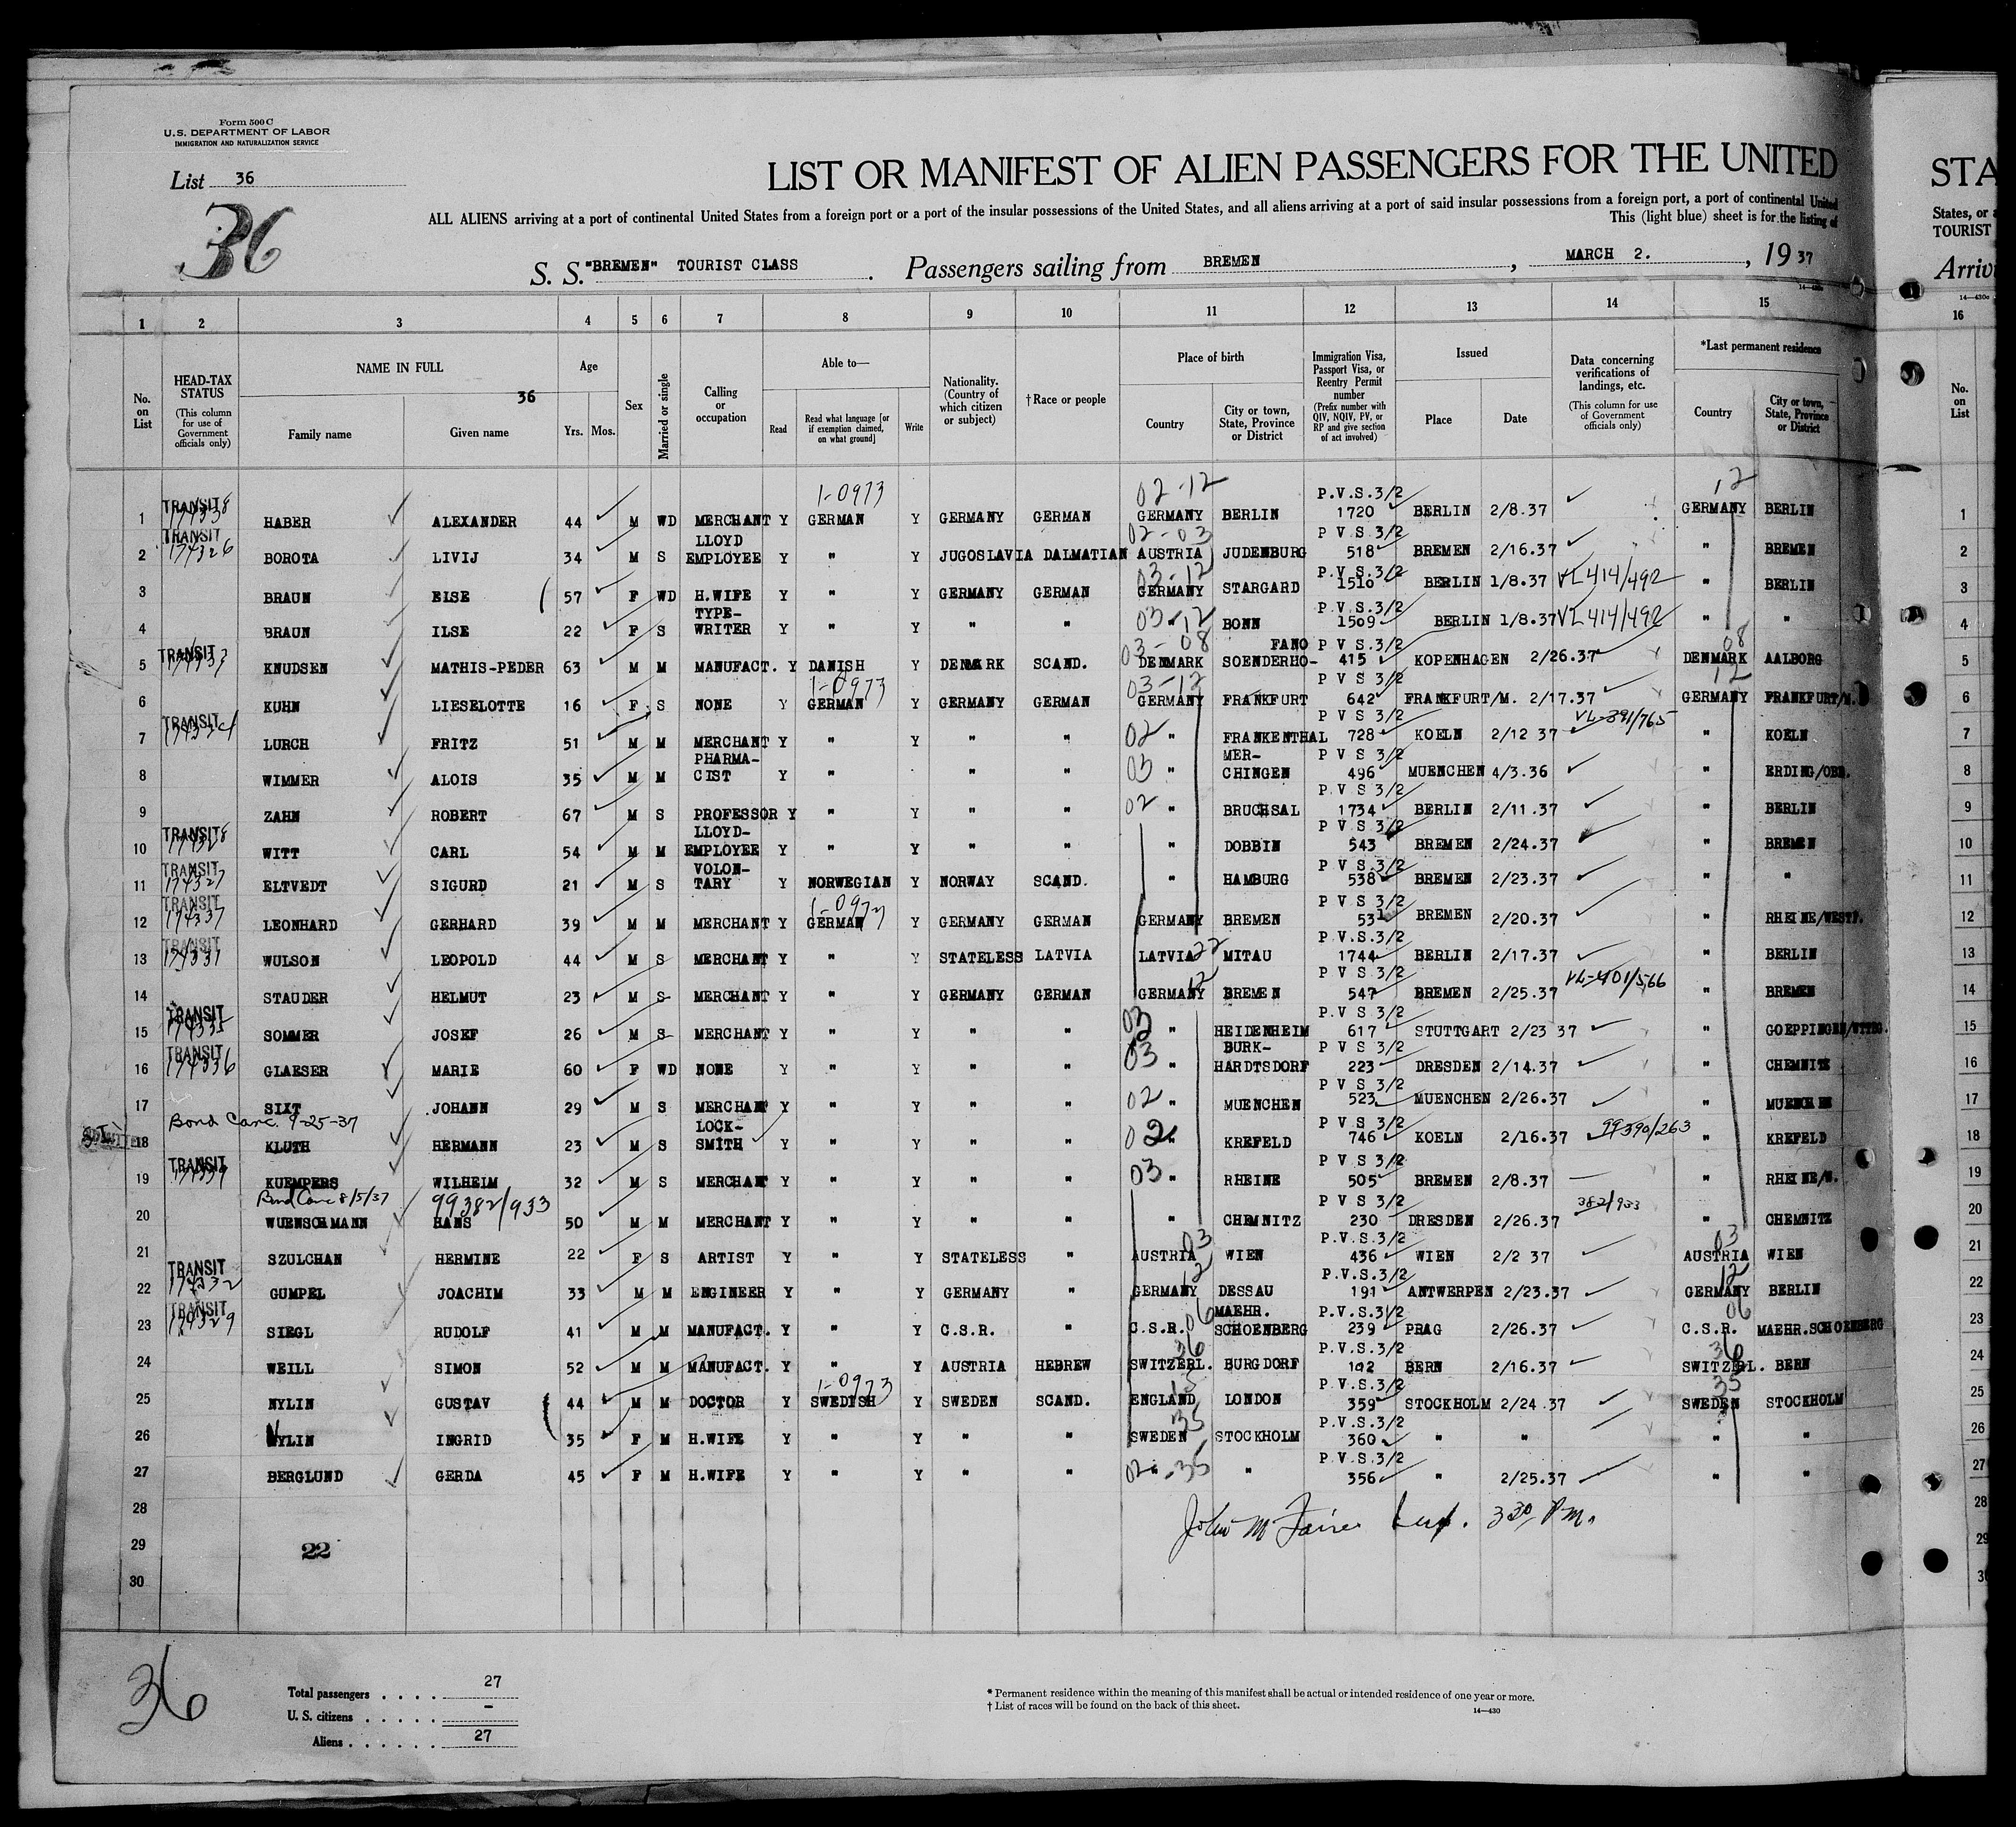 Form 500 C
U.S. DEPARTMENT OF LABOR
IMMIGRATION AND NATURALIZATION SERVICE
List 36
36
LIST OR MANIFEST OF ALIEN PASSENGERS FOR THE UNITED
STA
ALL ALIENS arriving at a port of continental United States from a foreign port or a port of the insular possessions of the United States, and all aliens arriving at a port of said insular possessions from a foreign port, a port of continental United
States, or a
This (light blue) sheet is for the listing of
TOURIST
S. S. "BREMEN" TOURIST CLASS . Passengers sailing from BREMEN , MARCH 2. , 19 37
Arrivi
1 2 3 4 5 6 7 8 9 10 11 12 13 14 15 16
No. on List
HEAD-TAX STATUS (This column for use of Government officials only)
NAME IN FULL 36
Family name Given name
Age Yrs. Mos.
Sex
Married or single
Calling or occupation
Able to— Read Read what language [or if exemption claimed, on what ground] Write
Nationality. (Country of which citizen or subject)
† Race or people
Place of birth Country City or town, State, Province or District
Immigration Visa, Passport Visa, or Reentry Permit number (Prefix number with QIV, NQIV, PV, or RP and give section of act involved)
Issued Place Date
Data concerning verifications of landings, etc. (This column for use of Government officials only)
*Last permanent residence Country City or town, State, Province or District
No. on List
1 TRANSIT 174338 HABER ALEXANDER 44 M WD MERCHANT Y GERMAN 1-0973 Y GERMANY GERMAN 02-12 GERMANY BERLIN P.V.S.3/2 1720 BERLIN 2/8.37 12 GERMANY BERLIN 1
2 TRANSIT 174326 BOROTA LIVIJ 34 M S LLOYD EMPLOYEE Y " Y JUGOSLAVIA DALMATIAN 02-03 AUSTRIA JUDENBURG P V S 3/2 518 BREMEN 2/16.37 " BREMEN 2
3 BRAUN ELSE 57 F WD H.WIFE Y " Y GERMANY GERMAN 03-12 GERMANY STARGARD P.V.S.3/2 1510 BERLIN 1/8.37 VL414/492 " BERLIN 3
4 BRAUN ILSE 22 F S TYPE-WRITER Y " Y " " 03-12 BONN P.V.S.3/2 1509 BERLIN 1/8.37 VL414/492 " " 4
5 TRANSIT KNUDSEN MATHIS-PEDER 63 M M MANUFACT. Y DANISH Y DENMARK SCAND. 03-08 DENMARK FANO SOENDERHO- P V S 3/2 415 KOPENHAGEN 2/26.37 08 DENMARK AALBORG 5
6 KUHN LIESELOTTE 16 F S NONE Y GERMAN 1-0973 Y GERMANY GERMAN 03-12 GERMANY FRANKFURT P V S 3/2 642 FRANKFURT/M. 2/17.37 12 GERMANY FRANKFURT/M. 6
7 TRANSIT LURCH FRITZ 51 M M MERCHANT Y " Y " " 02 " FRANKENTHAL P V S 3/2 728 KOELN 2/12 37 VL-391/765 " KOELN 7
8 WIMMER ALOIS 35 M M PHARMA-CIST Y " " " 03 " MER-CHINGEN P V S 3/2 496 MUENCHEN 4/3.36 " ERDING/OBB. 8
9 ZAHN ROBERT 67 M S PROFESSOR Y " Y " " 02 " BRUCHSAL P.V S 3/2 1734 BERLIN 2/11.37 " BERLIN 9
10 TRANSIT 174328 WITT CARL 54 M M LLOYD-EMPLOYEE Y " Y " " " DOBBIN P V S 3/2 543 BREMEN 2/24.37 " BREMEN 10
11 TRANSIT 174327 ELTVEDT SIGURD 21 M S VOLON-TARY Y NORWEGIAN Y NORWAY SCAND. " HAMBURG P V S 3/2 538 BREMEN 2/23.37 " " 11
12 TRANSIT 174337 LEONHARD GERHARD 39 M M MERCHANT Y GERMAN Y GERMANY GERMAN GERMANY BREMEN P V S 3/2 BREMEN 2/20.37 " RHEINE/WESTF. 12
13 TRANSIT 174331 WULSON LEOPOLD 44 M S MERCHANT Y " Y STATELESS LATVIA LATVIA 22 MITAU P.V.S.3/2 1744 BERLIN 2/17.37 " BERLIN 13
14 STAUDER HELMUT 23 M S MERCHANT Y " Y GERMANY GERMAN GERMANY 12 BREMEN P V S 3/2 547 BREMEN 2/25.37 VL-401/566 " BREMEN 14
15 TRANSIT 174335 SOMMER JOSEF 26 M S MERCHANT Y " Y " " 03 " HEIDENHEIM P.V S 3/2 617 STUTTGART 2/23 37 " GOEPPINGEN/WTTBG. 15
16 TRANSIT 174336 GLAESER MARIE 60 F WD NONE Y " Y " " 03 " BURK-HARDTSDORF P V S 3/2 223 DRESDEN 2/14.37 " CHEMNITZ 16
17 SIXT JOHANN 29 M S MERCHANT Y " Y " " 02 " MUENCHEN P V S 3/2 523 MUENCHEN 2/26.37 " MUENCHEN 17
Bond Canc. 9-25-37
18 KLUTH HERMANN 23 M S LOCK-SMITH Y " Y " " 02 " KREFELD P V S 3/2 746 KOELN 2/16.37 99390/263 " KREFELD 18
19 TRANSIT KUEMPERS WILHELM 32 M S MERCHANT Y " Y " " 03 " RHEINE P V S 3/2 505 BREMEN 2/8.37 " RHEINE/W. 19
Bond Canc 8/5/37 99382/933
20 WUENSCHMANN HANS 50 M M MERCHANT Y " Y " " " CHEMNITZ P V S 3/2 230 DRESDEN 2/26.37 382/933 " CHEMNITZ 20
21 SZULCHAN HERMINE 22 F S ARTIST Y " Y STATELESS " AUSTRIA 03 WIEN P.V.S.3/2 436 WIEN 2/2 37 03 AUSTRIA WIEN 21
22 TRANSIT 174332 GUMPEL JOACHIM 33 M M ENGINEER Y " Y GERMANY " GERMANY 12 DESSAU P.V.S.3/2 191 ANTWERPEN 2/23.37 12 GERMANY BERLIN 22
23 TRANSIT 174329 SIEGL RUDOLF 41 M M MANUFACT. Y " Y C.S.R. " C.S.R. 06 MAEHR. SCHOENBERG P.V.S.3/2 239 PRAG 2/26.37 06 C.S.R. MAEHR.SCHOENBERG 23
24 WEILL SIMON 52 M M MANUFACT. Y " Y AUSTRIA HEBREW 36 SWITZERL. BURGDORF P.V.S.3/2 192 BERN 2/16.37 36 SWITZERL. BERN 24
25 NYLIN GUSTAV 44 M M DOCTOR Y SWEDISH 1-0973 Y SWEDEN SCAND. ENGLAND LONDON P.V.S.3/2 359 STOCKHOLM 2/24.37 35 SWEDEN STOCKHOLM 25
26 NYLIN INGRID 35 F M H.WIFE Y " Y " " 35 SWEDEN STOCKHOLM P.V.S.3/2 360 " " " " 26
27 BERGLUND GERDA 45 F M H.WIFE Y " Y " " 02 " 35 " P.V.S.3/2 356 " 2/25.37 " " 27
28 28
29 22 29
30
3 30 P.m.
36
Total passengers . . . . 27
U. S. citizens . . . . . –
Aliens . . . . . . 27
* Permanent residence within the meaning of this manifest shall be actual or intended residence of one year or more.
† List of races will be found on the back of this sheet.
14—430